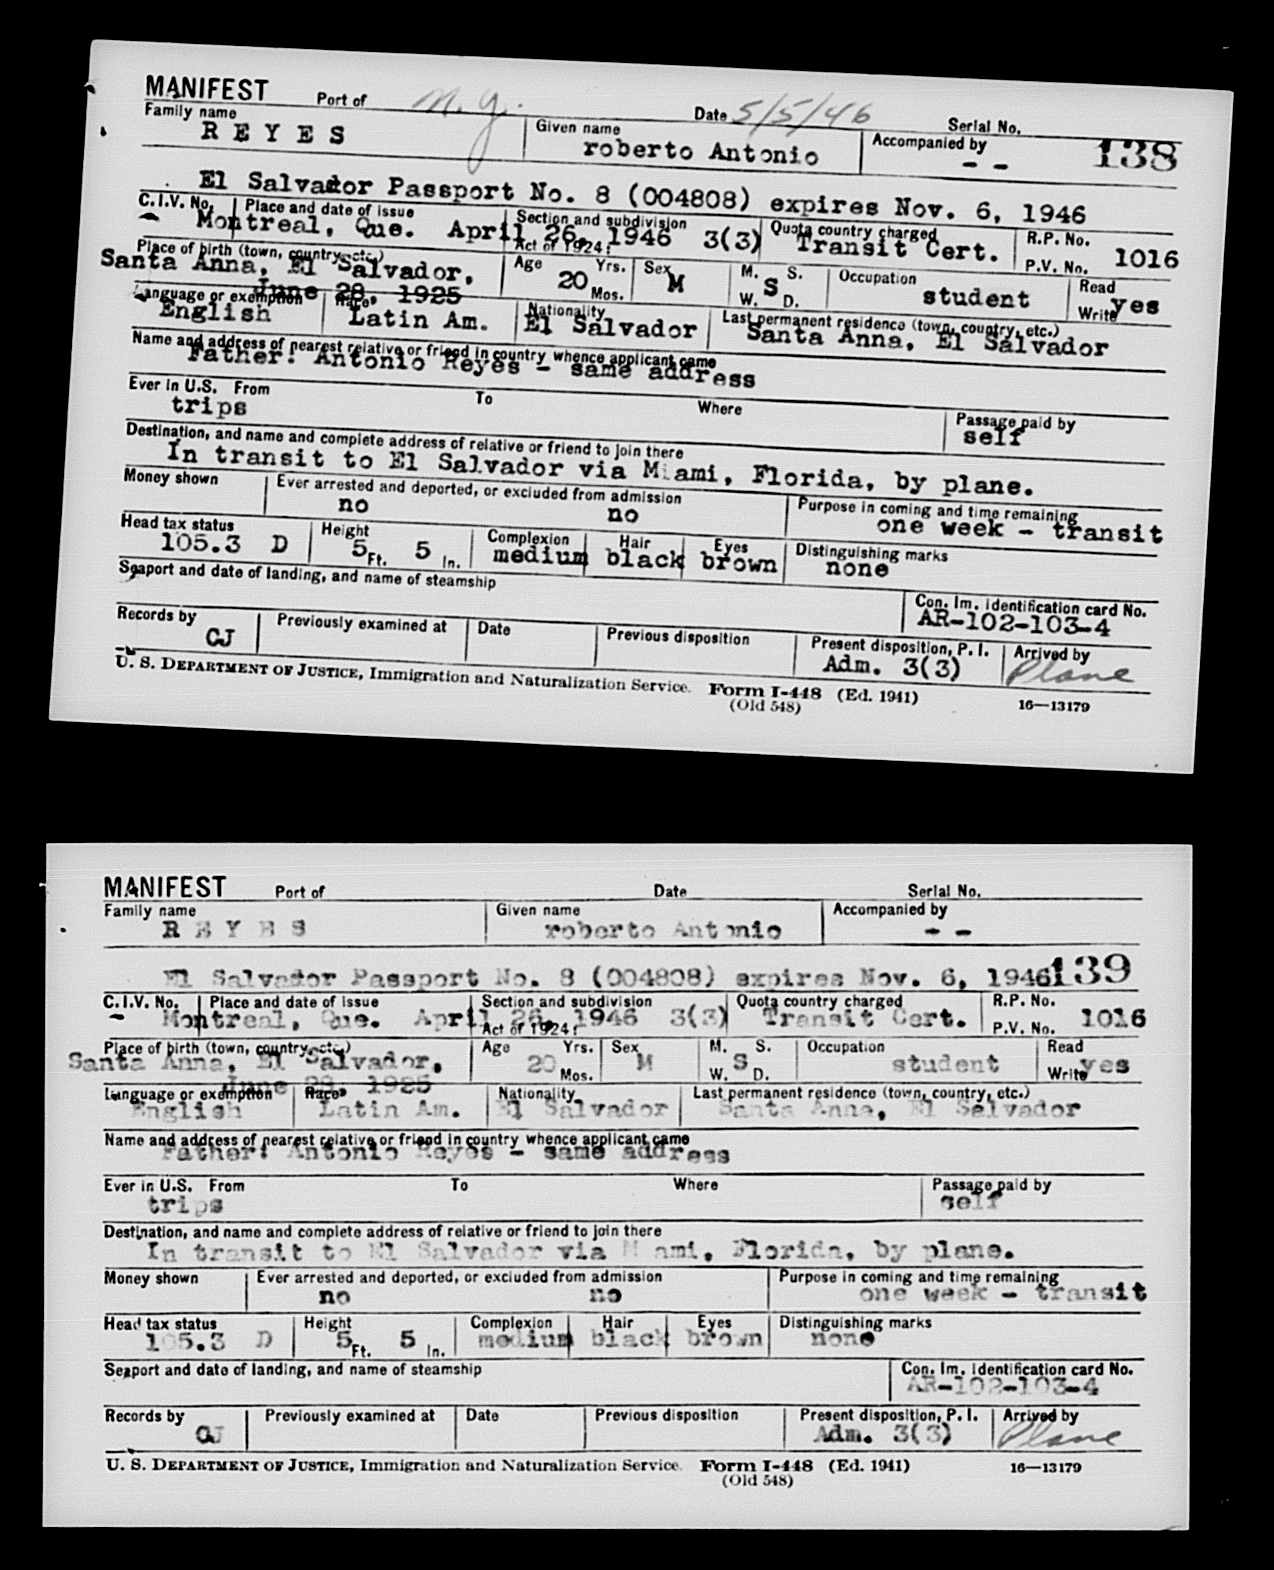 MANIFEST Port of N. Y. Date 5/5/46 Serial No.
Family name Given name Accompanied by 138
REYES roberto Antonio - -
El Salvador Passport No. 8 (004808) expires Nov. 6, 1946
C.I.V. No. Place and date of issue Section and subdivision Quota country charged R.P. No.
- Montreal, Que. April 26, 1946 3(3) Transit Cert. 1016
Act of 1924: P.V. No.
Place of birth (town, country, etc.) Age Yrs. Sex M. S. Occupation Read
Santa Anna, El Salvador, 20 M S student yes
June 28, 1925 Mos. W. D. Write
Language or exemption Race Nationality Last permanent residence (town, country, etc.)
English Latin Am. El Salvador Santa Anna, El Salvador
Name and address of nearest relative or friend in country whence applicant came
Father: Antonio Reyes - same address
Ever in U.S. From To Where Passage paid by
trips self
Destination, and name and complete address of relative or friend to join there
In transit to El Salvador via Miami, Florida, by plane.
Money shown Ever arrested and deported, or excluded from admission Purpose in coming and time remaining
no no one week - transit
Head tax status Height Complexion Hair Eyes Distinguishing marks
105.3 D 5 Ft. 5 In. medium black brown none
Seaport and date of landing, and name of steamship Con. Im. identification card No.
AR-102-103-4
Records by Previously examined at Date Previous disposition Present disposition, P. I. Arrived by
CJ Adm. 3(3) Plane
U. S. DEPARTMENT OF JUSTICE, Immigration and Naturalization Service. Form I-448 (Ed. 1941) 16—13179
(Old 548)
MANIFEST Port of Date Serial No.
Family name Given name Accompanied by
REYES roberto Antonio - -
El Salvador Passport No. 8 (004808) expires Nov. 6, 1946 139
C.I.V. No. Place and date of issue Section and subdivision Quota country charged R.P. No.
- Montreal, Que. April 26, 1946 3(3) Transit Cert. 1016
Act of 1924: P.V. No.
Place of birth (town, country, etc.) Age Yrs. Sex M. S. Occupation Read
Santa Anna, El Salvador, 20 M S student yes
June 28, 1925 Mos. W. D. Write
Language or exemption Race Nationality Last permanent residence (town, country, etc.)
English Latin Am. El Salvador Santa Anna, El Salvador
Name and address of nearest relative or friend in country whence applicant came
Father: Antonio Reyes - same address
Ever in U.S. From To Where Passage paid by
trips self
Destination, and name and complete address of relative or friend to join there
In transit to El Salvador via Miami, Florida, by plane.
Money shown Ever arrested and deported, or excluded from admission Purpose in coming and time remaining
no no one week - transit
Head tax status Height Complexion Hair Eyes Distinguishing marks
105.3 D 5 Ft. 5 In. medium black brown none
Seaport and date of landing, and name of steamship Con. Im. identification card No.
AR-102-103-4
Records by Previously examined at Date Previous disposition Present disposition, P. I. Arrived by
CJ Adm. 3(3) Plane
U. S. DEPARTMENT OF JUSTICE, Immigration and Naturalization Service. Form I-448 (Ed. 1941) 16—13179
(Old 548)